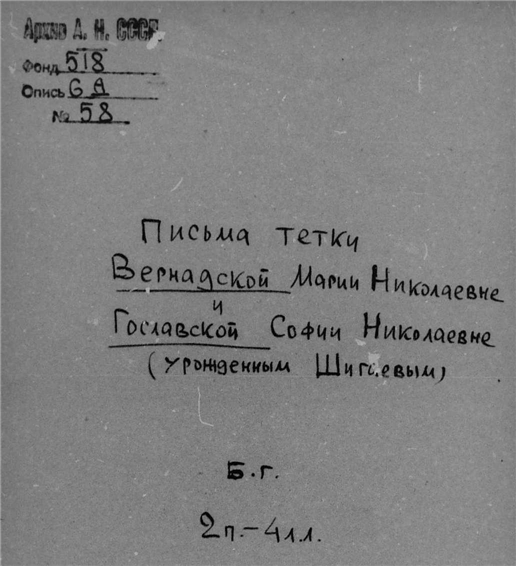 Архив А. Н. СССР.
Фонд 518
Опись 6 А
№ 58
Письма тетки
Вернадской Марии Николаевне
и
Гославской Софии Николаевне
(урожденным
Б.г.
2п.-4лл.